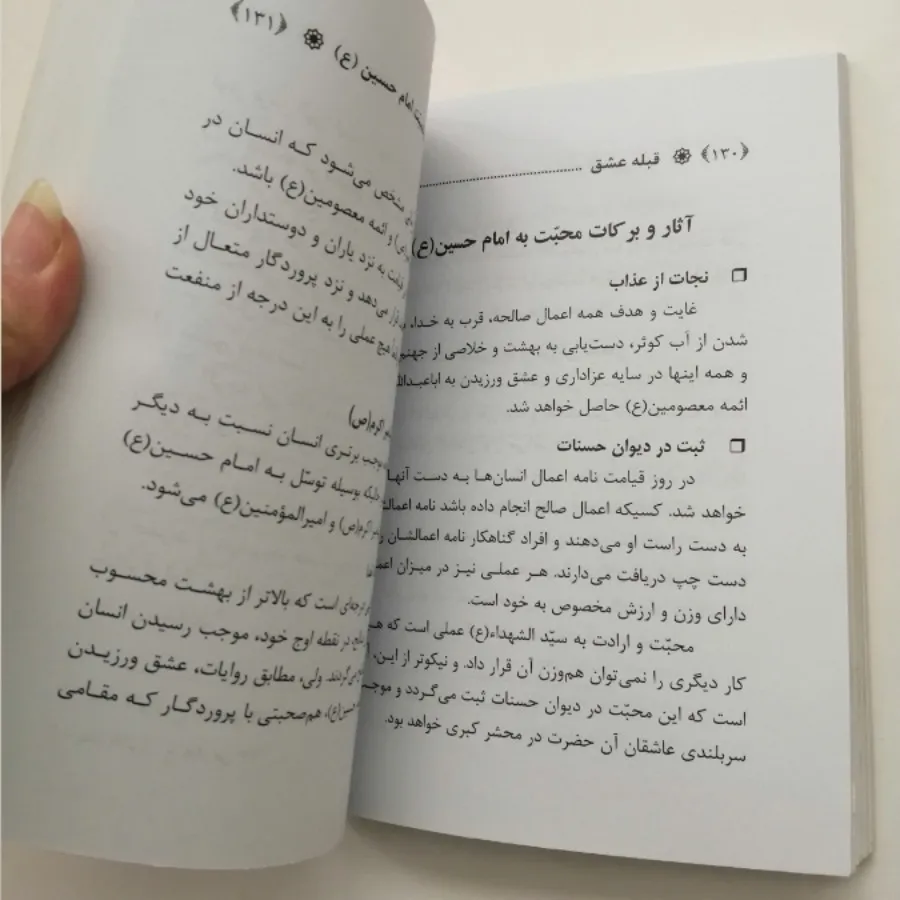 ﴿۱۳۰﴾ قبله عشق
آثار و برکات محبّت به امام حسین(ع)
نجات از عذاب
غایت و هدف همه اعمال صالحه، قرب به خدا،
شدن از آب کوثر، دست‌یابی به بهشت و خلاصی از جهنم
و همه اینها در سایه عزاداری و عشق ورزیدن به اباعبدالله
ائمه معصومین(ع) حاصل خواهد شد.
ثبت در دیوان حسنات
در روز قیامت نامه اعمال انسان‌ها به دست آنها
خواهد شد. کسیکه اعمال صالح انجام داده باشد نامه اعمالش
به دست راست او می‌دهند و افراد گناهکار نامه اعمالشان
دست چپ دریافت می‌دارند. هر عملی نیز در میزان
دارای وزن و ارزش مخصوص به خود است.
محبّت و ارادت به سیّد الشهداء(ع) عملی است که
کار دیگری را نمی‌توان هم‌وزن آن قرار داد. و نیکوتر از این،
است که این محبّت در دیوان حسنات ثبت می‌گردد و
سربلندی عاشقان آن حضرت در محشر کبری خواهد بود.
امام حسین (ع) ﴿۱۳۱﴾
مشخص می‌شود که انسان در
و ائمه معصومین(ع) باشد.
قیامت به نزد یاران و دوستداران خود
می‌دهد و نزد پروردگار متعال از
هیچ عملی را به این درجه از منفعت
اکرم(ص)
موجب برتری انسان نسبت به دیگر
بوسیله توسّل به امام حسین(ع)
اکرم(ص) و امیرالمؤمنین(ع) می‌شود.
درجه‌ای است که بالاتر از بهشت محسوب
در نقطه اوج خود، موجب رسیدن انسان
می‌گردند. ولی، مطابق روایات، عشق ورزیدن
حسین(ع)، هم‌صحبتی با پروردگار که مقامی